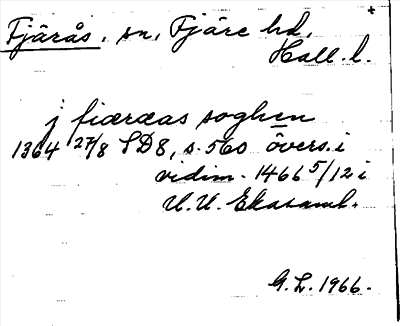 Fjärås. sn, Fjäre hd.
Hall. l.
j fiæræas soghen
1364 27/8 SD8, s. 560 övers. i
vidim. 1466 5/12 i
U. U. Eksaml.
G. L. 1966.